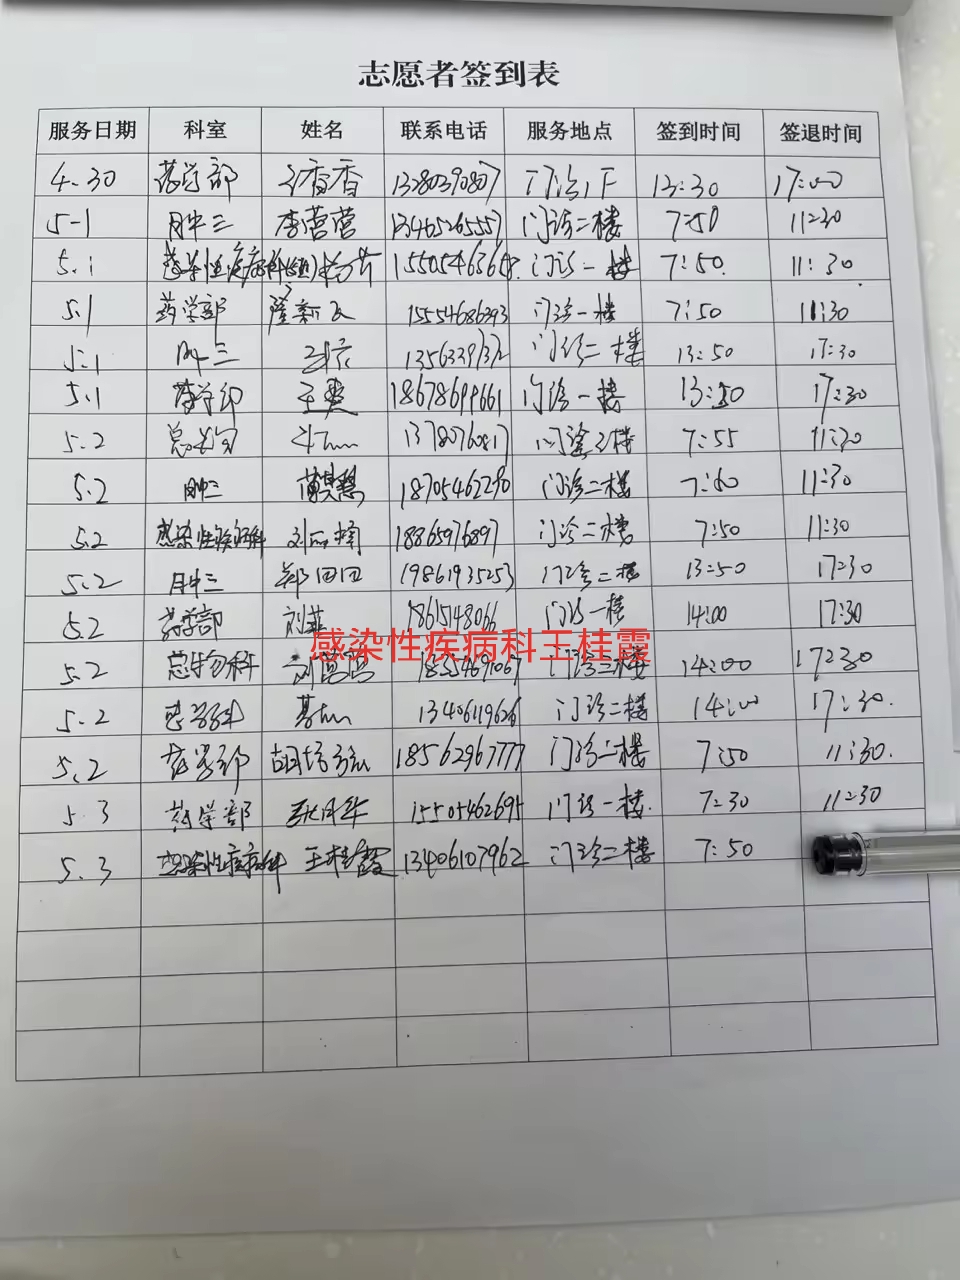 志愿者签到表
服务日期 科室 姓名 联系电话 服务地点 签到时间 签退时间
4.30 药学部 香香 13280390807 门诊1F 13:30 17:00
5-1 肿三 李营营 13465265557 门诊二楼 7:50 11:30
5.1 感染性疾病科 门诊一楼 7:50. 11:30
5.1 药学部 15554686393 门诊一楼 7:50 11:30
5.1 肿三 门诊二楼 13:50 17:30
5.1 药学部 王爽 18678699661 门诊一楼 13:50 17:30
5.2 门诊三楼 7:55 11:30
5.2 肿三 18705462290 门诊二楼 11:30
5.2 感染性疾病科 刘 18865976897 门诊二楼 7:50 11:30
5.2 肿三 郑田田 19861935253 门诊二楼 13:50 17:30
5.2 药学部 刘菲 门诊一楼 14:00 17:30
感染性疾病科王桂霞
5.2 刘 门诊三楼 14:00 17:30
5.2 13406119626 门诊二楼 14:00 17:30.
5.2 药学部 18562967777 门诊二楼 7:50 11:30.
5.3 药学部 15505462695 门诊一楼. 7:30 11:30
5.3 感染性疾病科 王桂霞 13406107962 门诊二楼 7:50